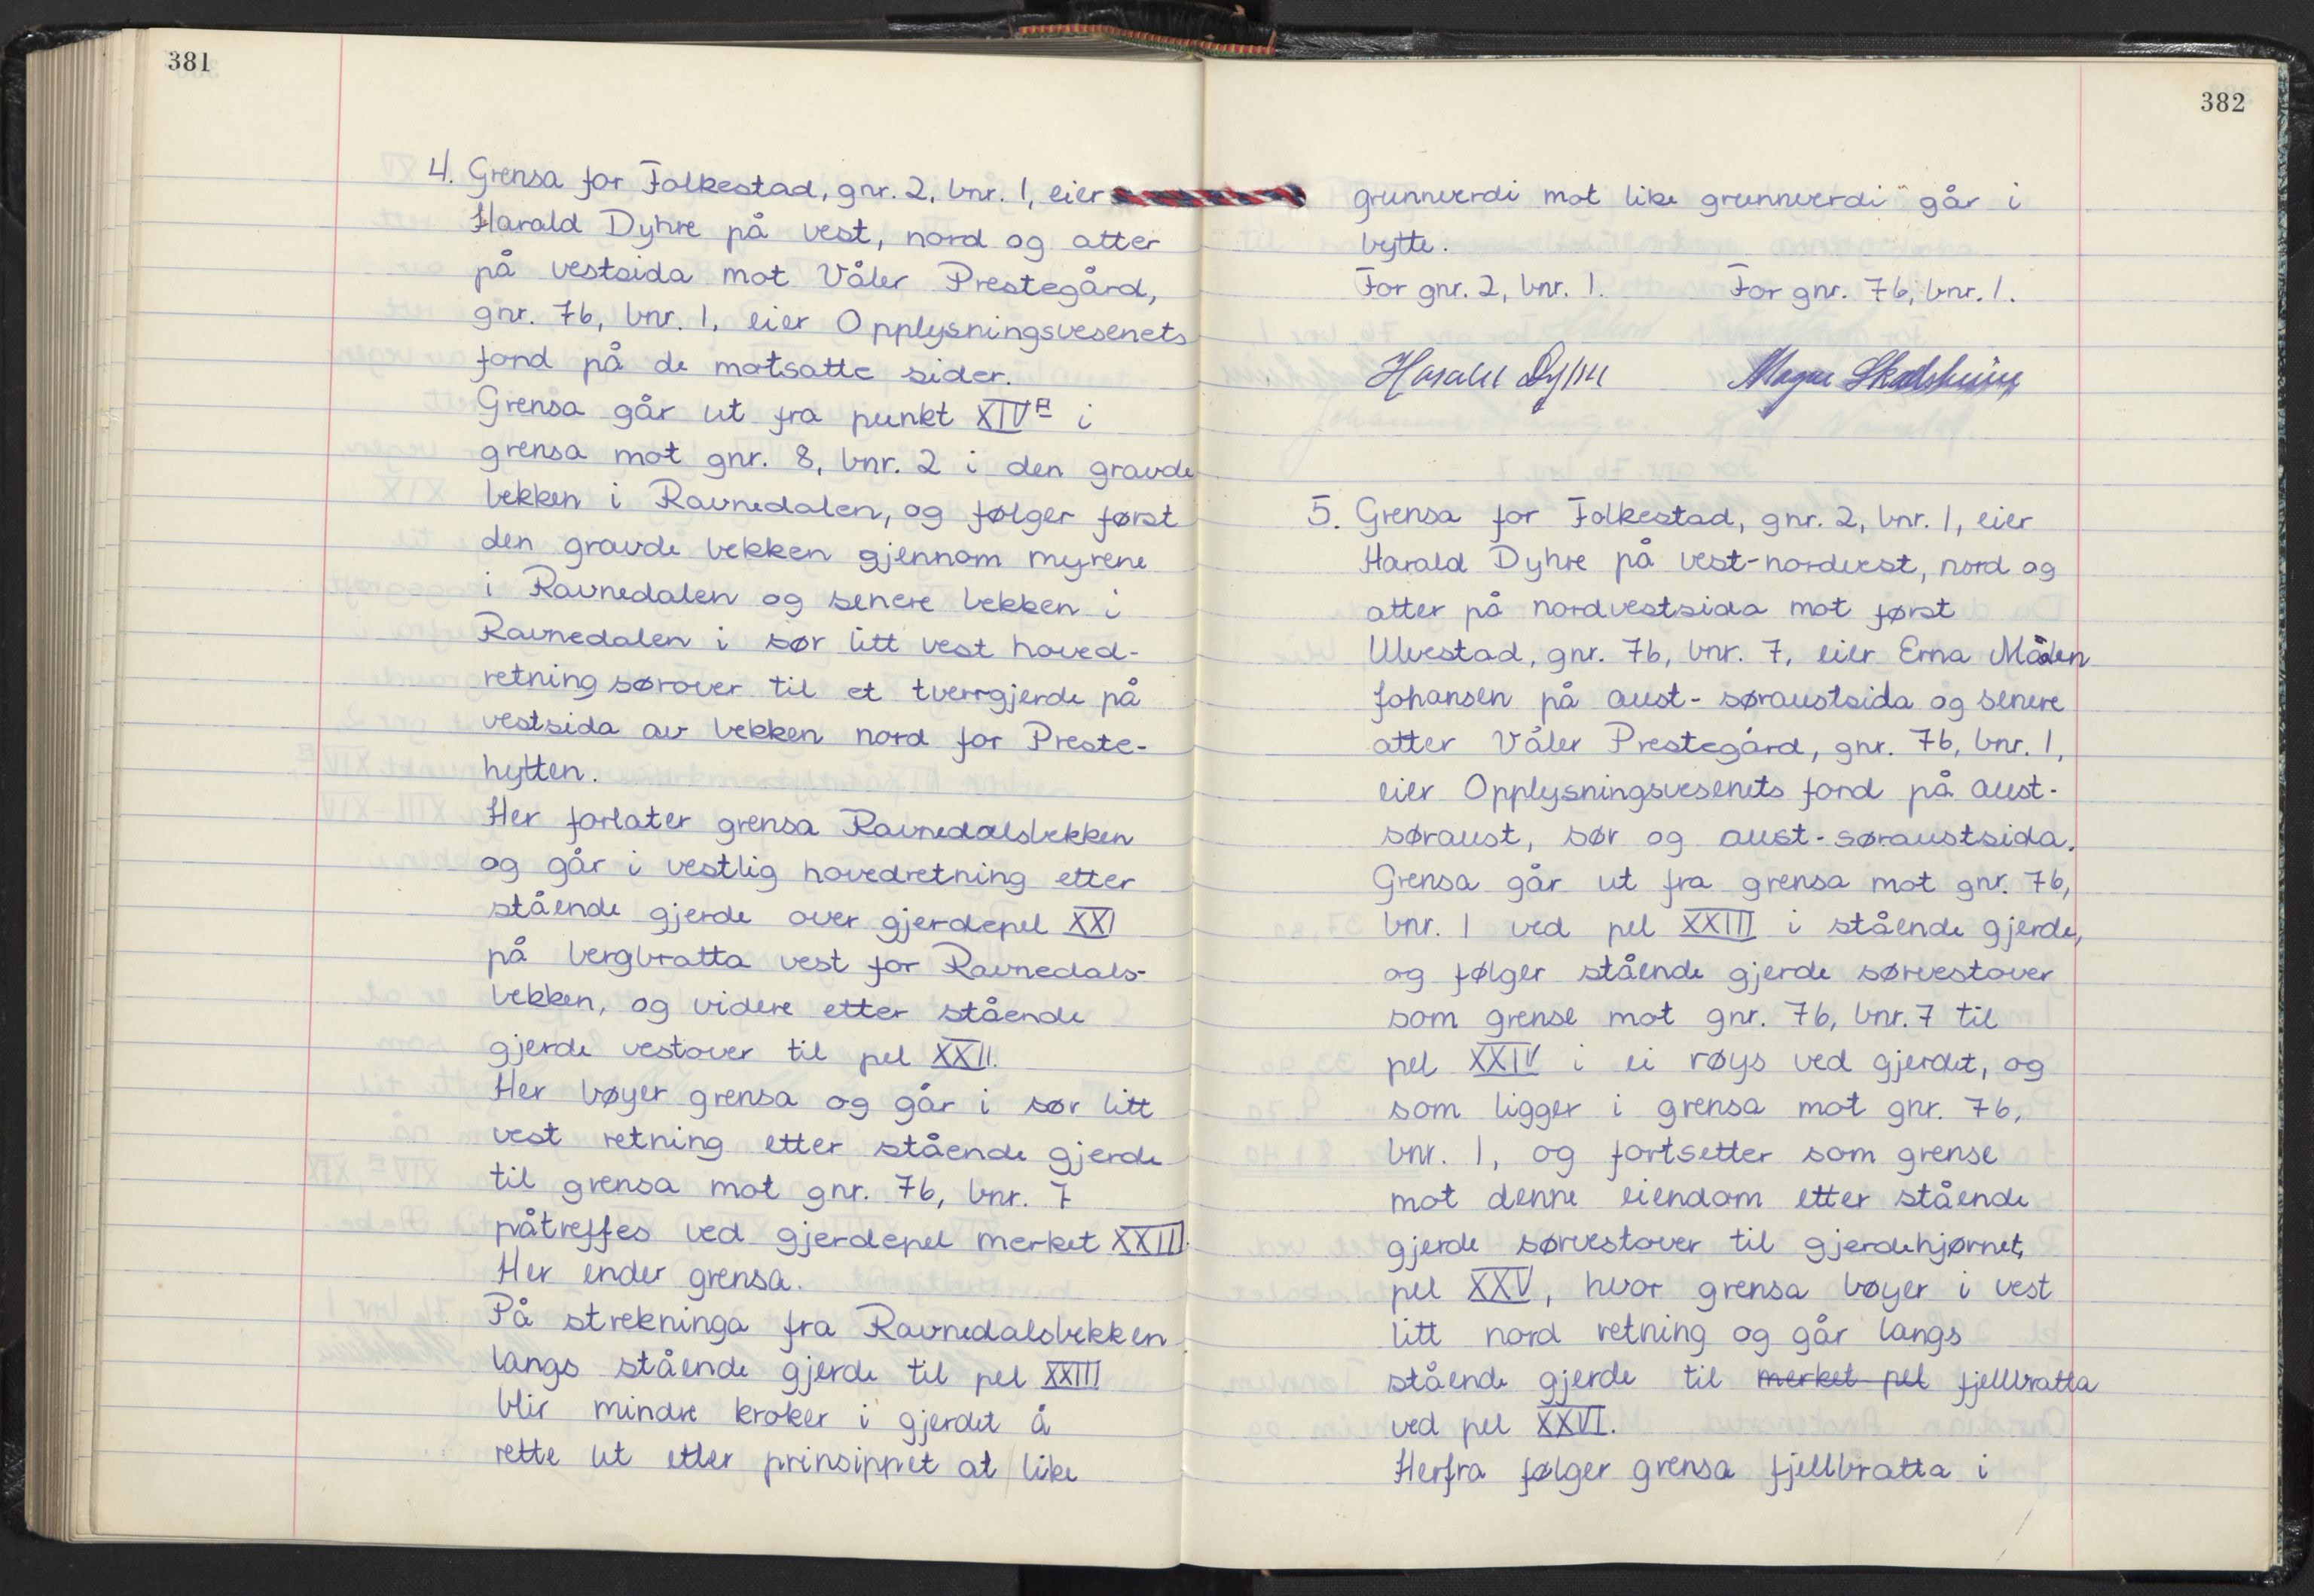 381
4. Grensa for Folkestad, gnr. 2, bnr. 1, eier
Harald Dyhre på vest, nord og atter
på vestsida mot Våler Prestegård,
gnr. 76, bnr. 1, eier Opplysningsvesenets
fond på de motsatte sider.
Grensa går ut fra punkt XIVᴱ i
grensa mot gnr. 8, bnr. 2 i den gravde
bekken i Ravnedalen, og følger først
den gravde bekken gjennom myrene
i Ravnedalen og senere bekken i
Ravnedalen i sør litt vest hoved-
retning sørover til et tverrgjerde på
vestsida av bekken nord for Preste-
hytten.
Her forlater grensa Ravnedalsbekken
og går i vestlig hovedretning etter
stående gjerde over gjerdepel XXI
på bergbratta vest for Ravnedals-
bekken, og videre etter stående
gjerde vestover til pel XXII.
Her bøyer grensa og går i sør litt
vest retning etter stående gjerde
til grensa mot gnr. 76, bnr. 7
påtreffes ved gjerdepel merket XXIII.
Her ender grensa.
På strekninga fra Ravnedalsbekken
langs stående gjerde til pel XXIII
blir mindre kroker i gjerdet å
rette ut etter prinsippet at like
382
grunnverdi mot like grunnverdi går i
bytte.
For gnr. 2, bnr. 1. For gnr. 76, bnr. 1.
Harald Dyhre Magne Skadsheim
5. Grensa for Folkestad, gnr. 2, bnr. 1, eier
Harald Dyhre på vest-nordvest, nord og
atter på nordvestsida mot først
Ulvestad, gnr. 76, bnr. 7, eier Erna Målen
Johansen på aust-søraustsida og senere
atter Våler Prestegård, gnr. 76, bnr. 1,
eier Opplysningsvesenets fond på aust-
søraust, sør og aust-søraustsida.
Grensa går ut fra grensa mot gnr. 76,
bnr. 1 ved pel XXIII i stående gjerde,
og følger stående gjerde sørvestover
som grense mot gnr. 76, bnr. 7 til
pel XXIV i ei røys ved gjerdet, og
som ligger i grensa mot gnr. 76,
bnr. 1, og fortsetter som grense
mot denne eiendom etter stående
gjerde sørvestover til gjerdehjørnet,
pel XXV, hvor grensa bøyer i vest
litt nord retning og går langs
stående gjerde til merket pel fjellbratta
ved pel XXVI.
Herfra følger grensa fjellbratta i